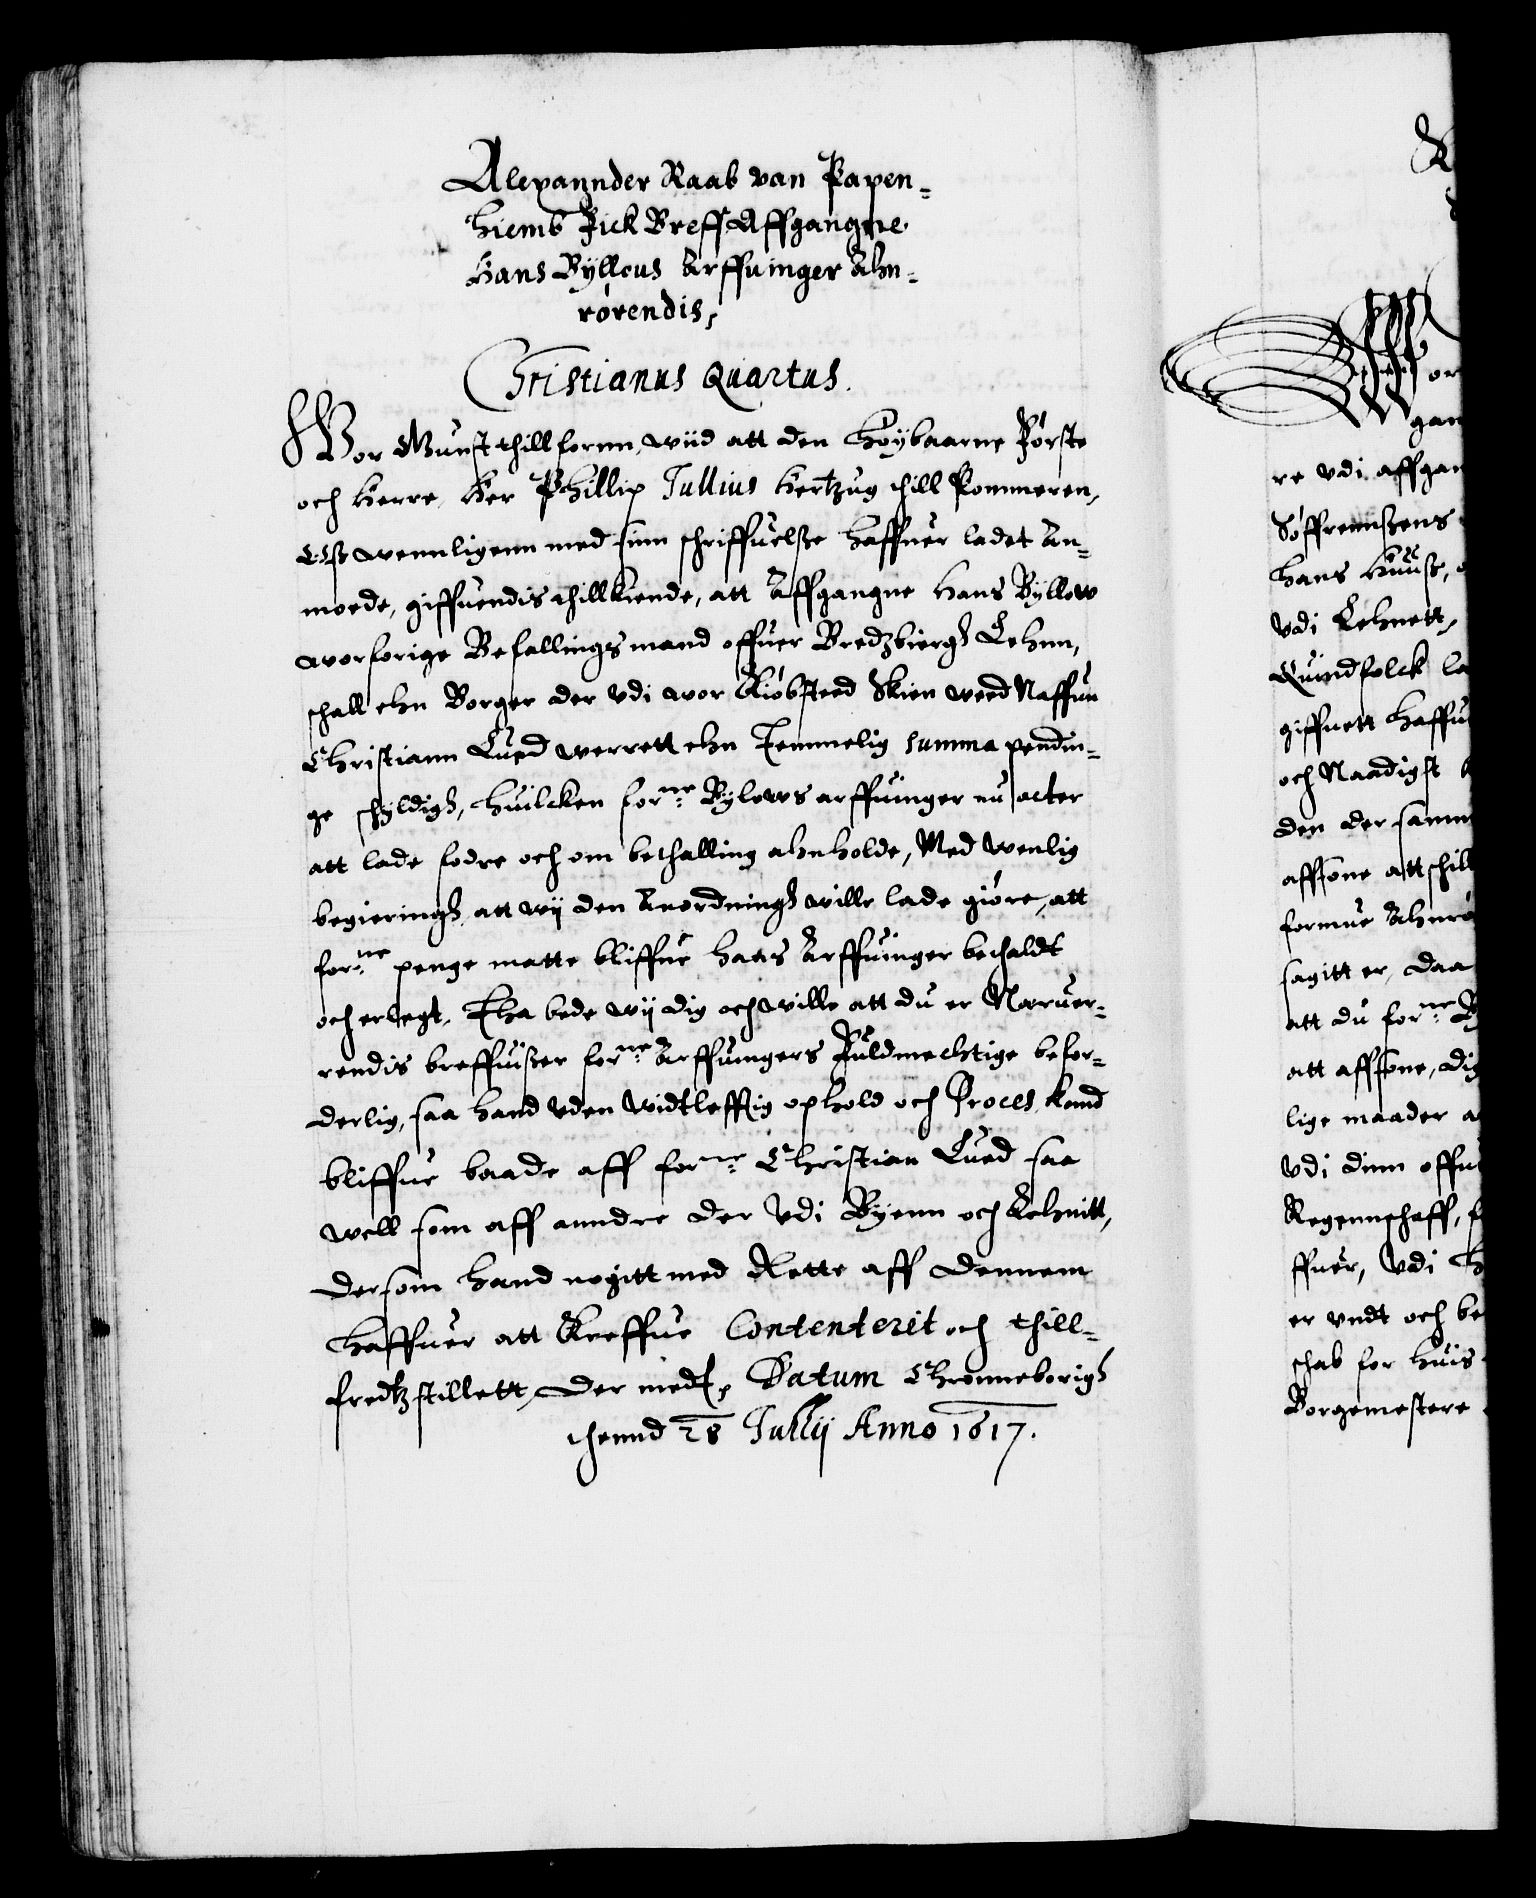 Alexannder Raab van Papen-
hiemb Fick Breff Affgangne
Hans Byllous Arffuinger Ahn-
rørendis,
Christianus Quartus.
Wor Gunst thillfornn, wiid att den Høybaarne Første
och Herre, Her Phillip Jullius Hertzug thill Pommeren,
Oss wennligenn med sinn schriffuelsse haffuer ladet An-
moede, giffuendis thillkiende, att Affgangne Hans Byllow
worforige Befallingsmand offuer Bredzbierg Lehnn,
schall ehn Borger der vdi wor Kiøbsteed Skien weed Naffun
Christiann Lued werrett ehn Temmelig summa pendin-
ge schyldig, huilcken forne Bylows arffuinger nu acter
att lade fodre och om bethalling ahnholde, Med wenlig
begiering att wij den Anordning wille lade giøre, att
forne penge matte bliffue hans Arffuinger bethaldt
och erlegt. Tha bede wij dig och wille att du er Neruer-
rendis breffuisser forne Arffuingers Fuldmechtige befor-
derlig, saa hand vden widtleffig ophold och Proces, kand
bliffue baade aff forne Christian Lued saa
well som aff anndre der vdi Byenn och Lehnitt,
dersom hand nogitt med Rette aff dennem
haffuer att Kreffue Contenterit och thill-
fredtz stillett, der med, Datum Chronneborig
thennd 28 Jullij Anno 1617.
or
gan
re vdi affgan
Søffrennssens
Hans Huuss,
vdi Lehnett,
Quindfolck la
giffuett haffu
och Naadigst
den der samm
affsone att
formue Ahnrø
sagitt er, daa
att du forne
att affsone, dig
lige maader
vdi dinn offu
Regennschaff,
ffuer, vdi
er vndt och be
schab for huis
Borgemestere